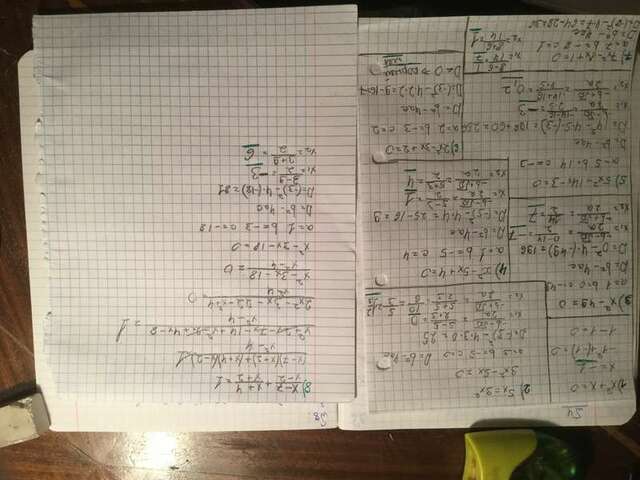 1) x²+x=0
x=-1
-1²+(-1)=0
1-1=0
2) 5x=3x²
3x²-5x=0
a=3 b=-5 c=0 D=b²-4ac
D=(-5)²-4·3·0=25
3) x²-49=0
a=1 b=0 c=-49
D=b²-4ac
D=0²-4·(-49)=196
4) x²-5x+4=0
a=1 b=-5 c=4
D=b²-4ac
D=(-5)²-4·4=25-16=9
x₁=(-b-√D)/2a=(5-3)/2=1
x₂=(-b+√D)/2a=(5+3)/2=4
5) 5x²-14x-3=0
a=5 b=14 c=-3
D=b²-4ac
D=14²-4·5·(-3)=196+60=256
6) 2x²-3x+2=0
a=2 b=-3 c=2
D=b²-4ac
D=(-3)²-4·2·2=9-16=-7
D<0 ⇒ корней
нет
7) 7x²-8x+1=0
a=7 b=-8 c=1
D=b²-4ac
D=(-8)²-4·7=64-28=36
x₁=(8-6)/14=1/7
x₂=(8+6)/14=1
8) (x-7)/(x-2)+(x+4)/(x+2)=1
((x-7)(x+2)+(x+4)(x-2))/(x²-4)=1
(x²+2x-7x-14+x²-2x+4x-8)/(x²-4)=1
(2x²-3x-22-x²+4)/(x²-4)=0
(x²-3x-18)/(x²-4)=0
x²-3x-18=0
a=1 b=-3 c=-18
D=b²-4ac
D=(-3)²-4·(-18)=81
x₁=(3-9)/2=-3
x₂=(3+9)/2=6